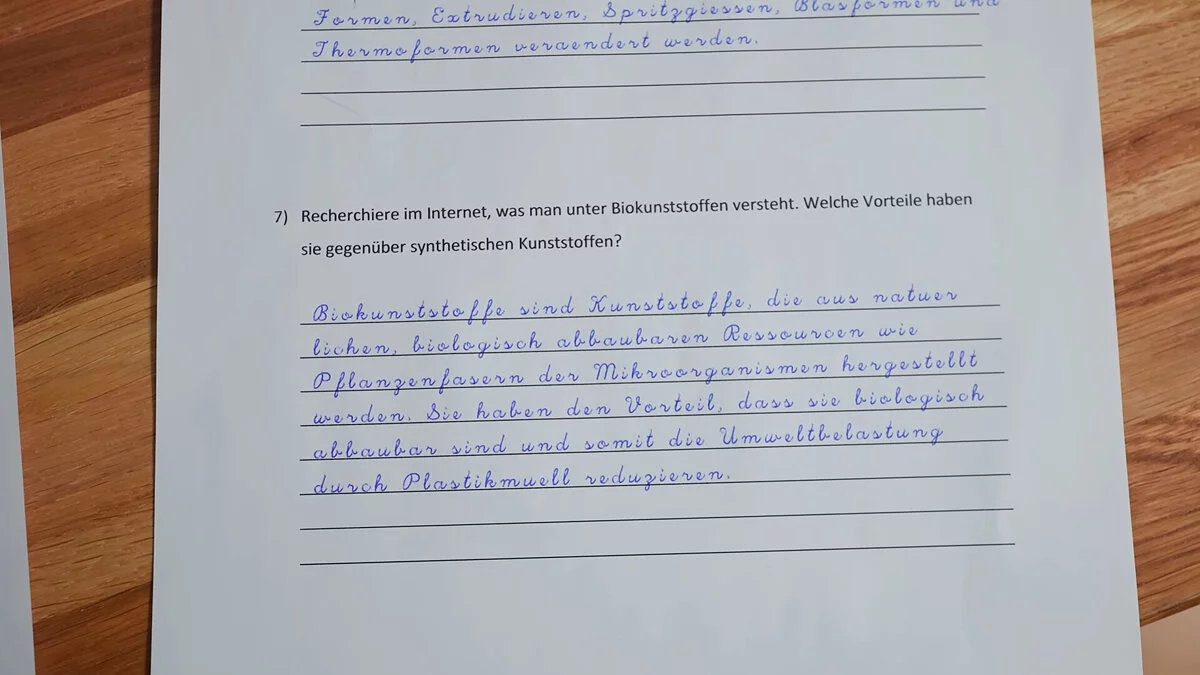 Formen, Extrudieren, Spritzgiessen, Blasformen und
Thermoformen veraendert werden.
7) Recherchiere im Internet, was man unter Biokunststoffen versteht. Welche Vorteile haben
sie gegenüber synthetischen Kunststoffen?
Biokunststoffe sind Kunststoffe, die aus natuer
lichen, biologisch abbaubaren Ressourcen wie
Pflanzenfasern der Mikroorganismen hergestellt
werden. Sie haben den Vorteil, dass sie biologisch
abbaubar sind und somit die Umweltbelastung
durch Plastikmuell reduzieren.